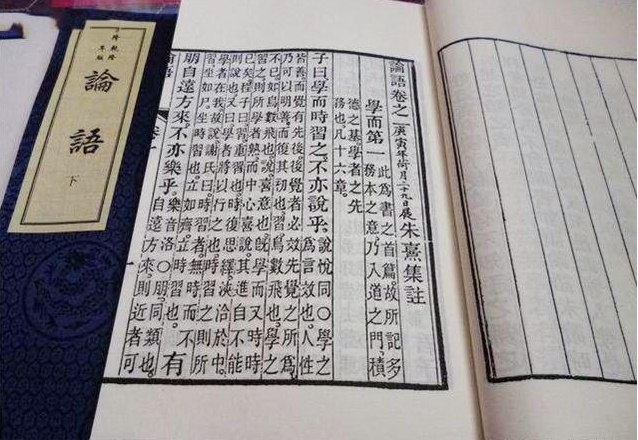 論語
下
論語卷之一 庚寅年荷月二十九日展 朱熹集註
學而第一 此爲書之首篇。故所記多
務本之意。乃入道之門。積
德之基。學者之先
務也。凡十六章。
子曰學而時習之。不亦說乎。說悅同〇學之
爲言效也。人性
皆善。而覺有先後。後覺者必效先覺之所爲。
乃可以明善而復其初也。習。鳥數飛也。學之
不已。如鳥數飛也。說。喜意也。旣學而又時時
習之。則所學者熟。而中心喜說。其進自不能
已矣。程子曰。習。重習也。時復思繹。浹洽於中。
則說也。又曰。學者將以行之也。時習之。則所
學者在我。故說。謝氏曰。時習者。無時而不
習。坐如尸。坐時習也。立如齊。立時習也。有
朋自遠方來。不亦樂乎。樂音洛〇朋。同類也。
自遠方來。則近者可